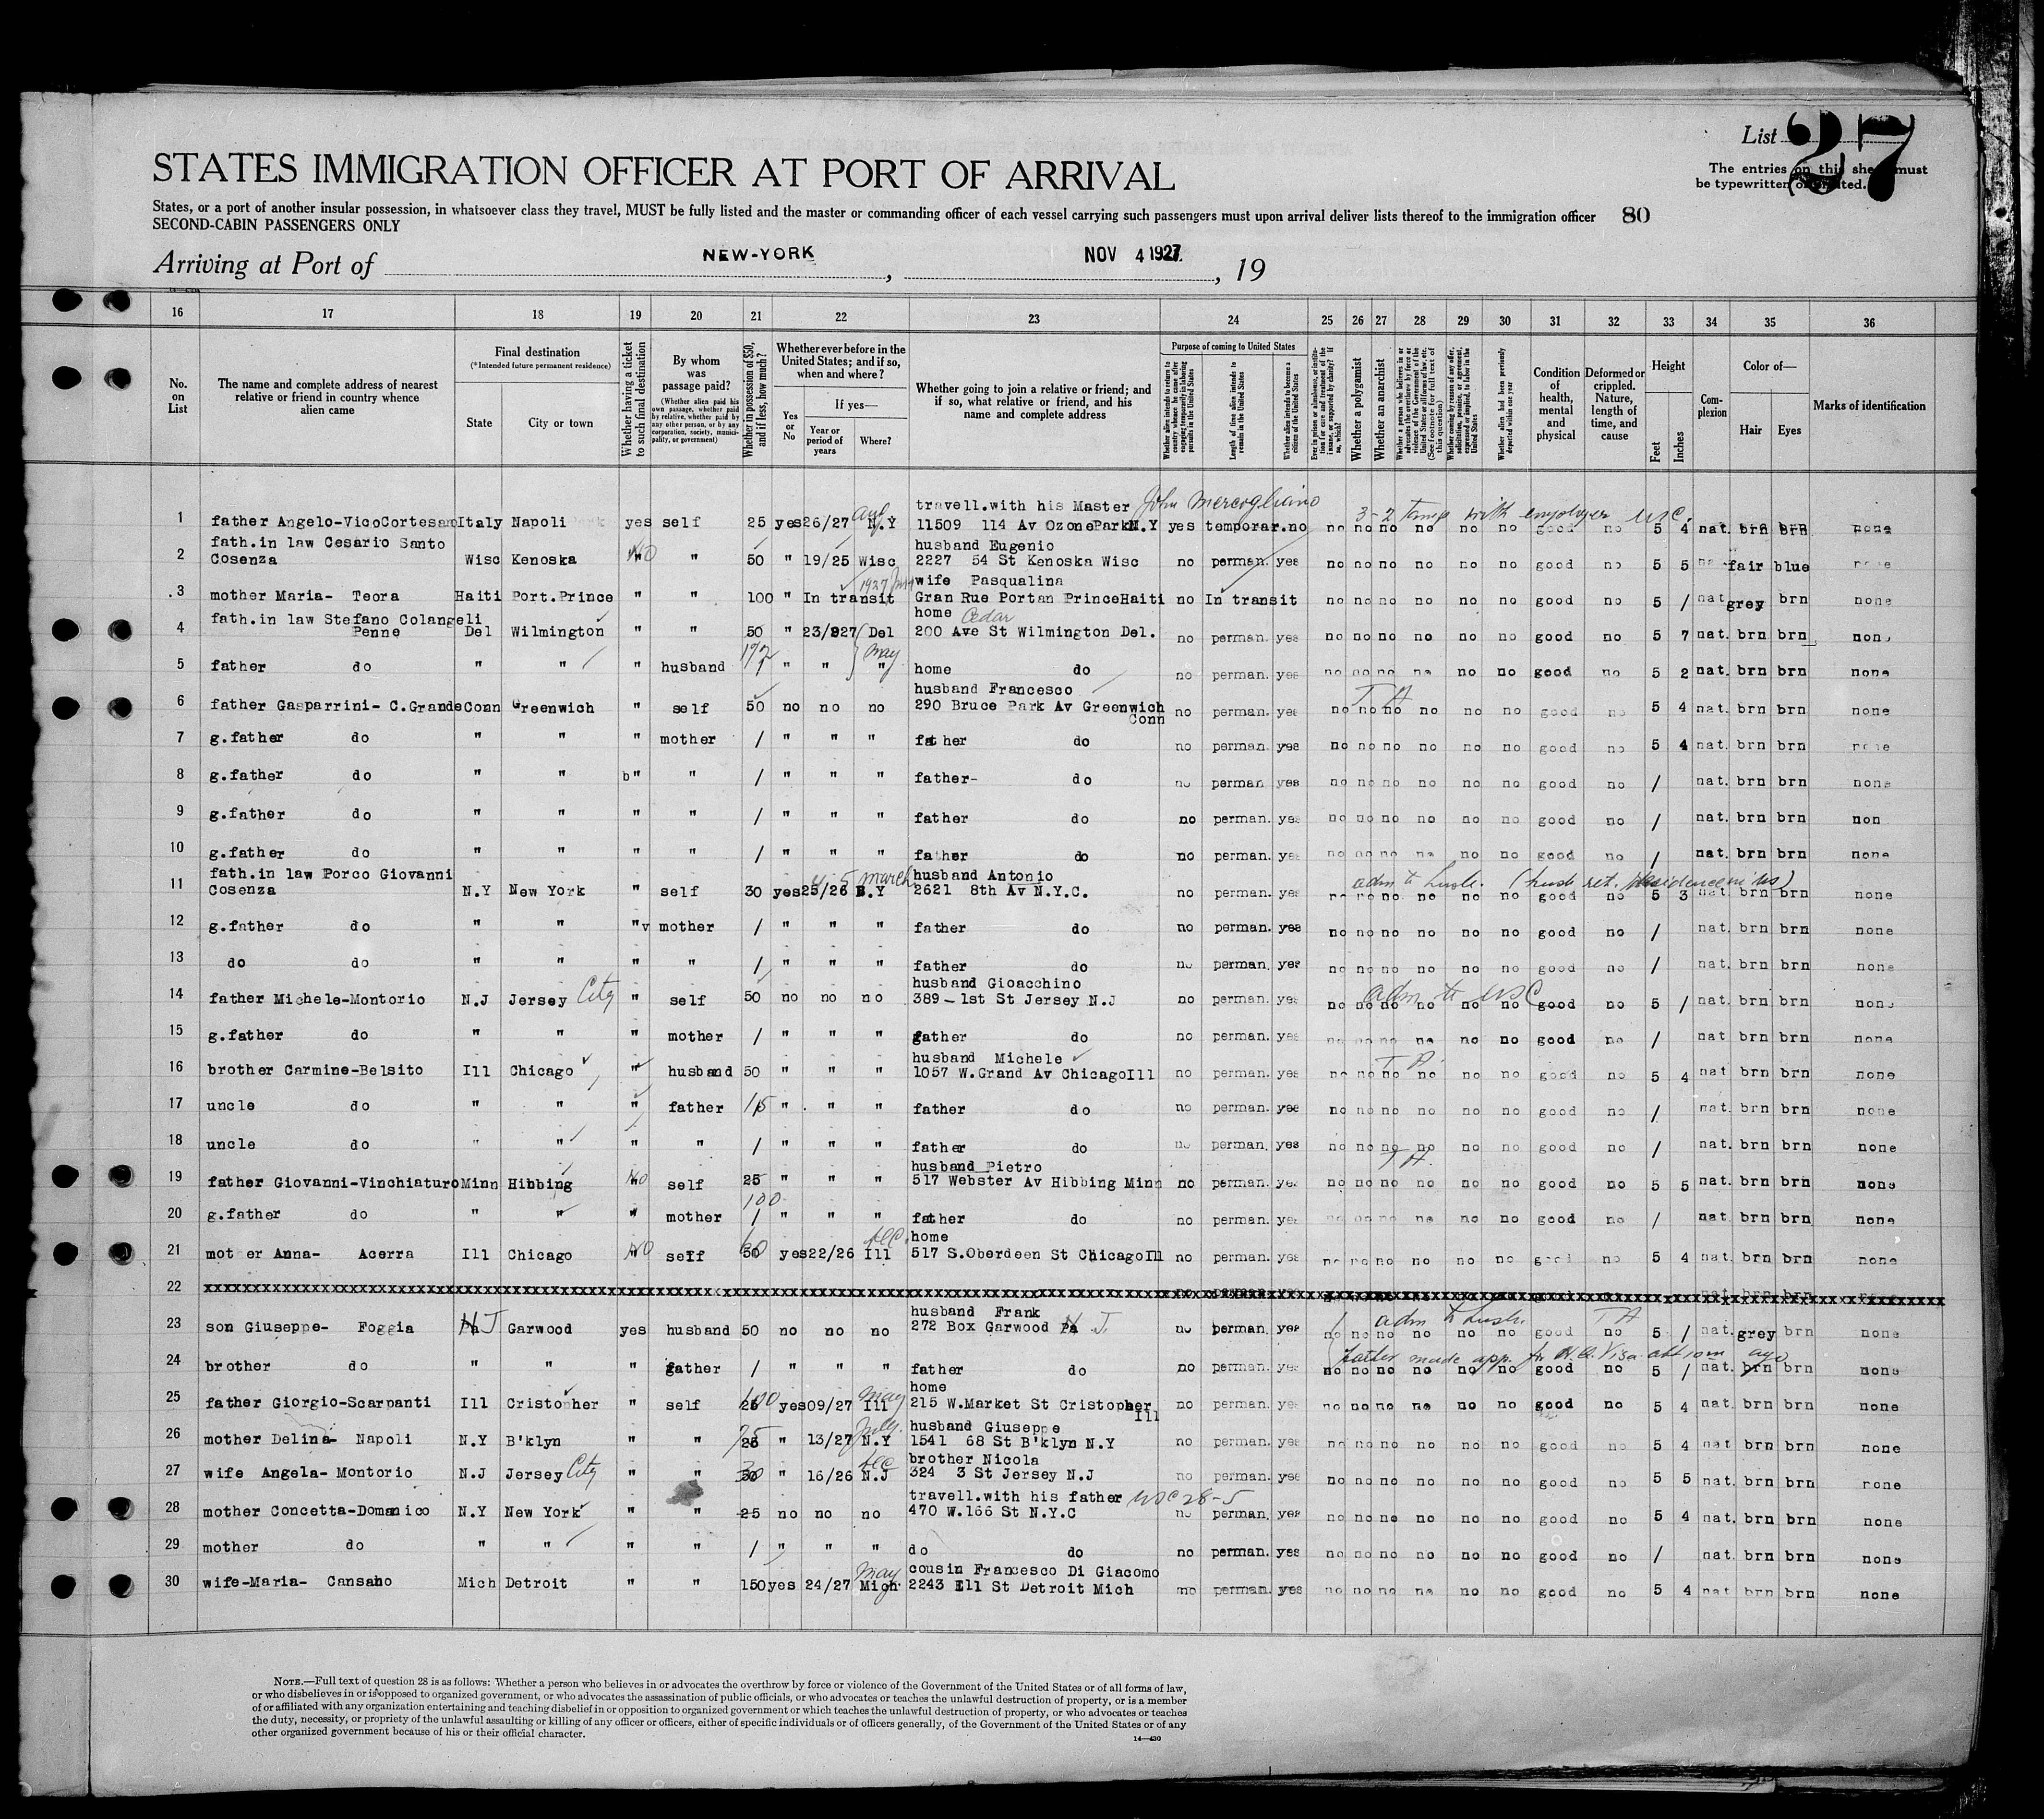 List 27
The entries on this sheet must
be typewritten or printed.
STATES IMMIGRATION OFFICER AT PORT OF ARRIVAL
States, or a port of another insular possession, in whatsoever class they travel, MUST be fully listed and the master or commanding officer of each vessel carrying such passengers must upon arrival deliver lists thereof to the immigration officer 80
SECOND-CABIN PASSENGERS ONLY
Arriving at Port of NEW-YORK, NOV 4 1927, 19
16 17 18 19 20 21 22 23 24 25 26 27 28 29 30 31 32 33 34 35 36
No. on List
The name and complete address of nearest relative or friend in country whence alien came
Final destination
(*Intended future permanent residence)
State
City or town
Whether having a ticket to such final destination
By whom was passage paid?
(Whether alien paid his own passage, whether paid by relative, whether paid by any other person, or by any corporation, society, municipality, or government)
Whether in possession of $50, and if less, how much?
Whether ever before in the United States; and if so, when and where?
Yes or No
If yes—
Year or period of years
Where?
Whether going to join a relative or friend; and if so, what relative or friend, and his name and complete address
Purpose of coming to United States
Whether alien intends to return to country whence he came after engaging temporarily in laboring pursuits in the United States
Length of time alien intends to remain in the United States
Whether alien intends to become a citizen of the United States
Ever in prison or almshouse, or institution for care and treatment of the insane, or supported by charity? If so, which?
Whether a polygamist
Whether an anarchist
Whether a person who believes in or advocates the overthrow by force or violence of the Government of the United States or all forms of law, etc. (See footnote for full text of this question)
Whether coming by reason of any offer, solicitation, promise, or agreement, expressed or implied, to labor in the United States
Whether alien had been previously deported within one year
Condition of health, mental and physical
Deformed or crippled. Nature, length of time, and cause
Height
Feet
Inches
Complexion
Color of—
Hair
Eyes
Marks of identification
travell.with his Master John Mercogliano
1 father Angelo-VicoCortesano Italy Napoli yes self 25 yes 26/27 Aug N.Y 11509 114 Av OzoneParkN.Y yes temporar. no no no no no no no good no 5 4 nat. brn brn none
3-2 times with employer USC.
fath.in law Cesario Santo husband Eugenio
2 Cosenza Wisc Kenoska NO " 50 " 19/25 Wisc 2227 54 St Kenoska Wisc no perman. yes no no no no no no good no 5 5 fair blue none
wife Pasqualina
3 mother Maria- Teora Haiti Port.Prince " " 100 " In transit 1927 Gran Rue Portan PrinceHaiti no In transit no no no no no no good no 5 / nat grey brn none
fath.in law Stefano Colangeli home Cedar
4 Penne Del Wilmington " " 50 " 23/927 Del 200 Ave St Wilmington Del. no perman. yes no no no no no no good no 5 7 nat. brn brn none
5 father do " " " husband / " " May " home do no perman. yes no no no no no no good no 5 2 nat. brn brn none
husband Francesco
6 father Gasparrini- C.Grande Conn Greenwich " self 50 no no no 290 Bruce Park Av Greenwich Conn no perman. yes no no no no no no good no 5 4 nat. brn brn none
7 g.father do " " " mother / " " " father do no perman. yes no no no no no no good no 5 4 nat. brn brn none
8 g.father do " " b" " / " " " father- do no perman yes no no no no no no good no / nat. brn brn none
9 g.father do " " " " / " " " father do no perman. yes no no no no no no good no / nat. brn brn non
10 g.father do " " " " / " " " father do no perman. yes no no no no no no good no / nat. brn brn none
fath.in law Porco Giovanni husband Antonio
11 Cosenza N.Y New York " self 30 yes 25/26 March N.Y 2621 8th Av N.Y.C. no perman. yes no no no no no no good no 5 3 nat. brn brn none
12 g.father do " " "v mother / " " " father do no perman. yes no no no no no no good no / nat. brn brn none
13 do do " " " " / " " " father do no perman. yes no no no no no no good no / nat. brn brn none
husband Gioacchino
14 father Michele-Montorio N.J Jersey City " self 50 no no no 389-1st St Jersey N.J no perman. yes no no no no no no good no 5 / nat. brn brn none
adm to USC
15 g.father do " " " mother / " " " father do no perman. yes no no no no no no good no / nat brn brn none
husband Michele
16 brother Carmine-Belsito Ill Chicago " husband 50 " " " 1057 W.Grand Av ChicagoIll no perman. yes no no no no no no good no 5 4 nat brn brn none
17 uncle do " " " father 15 " " " father do no perman. yes no no no no no no good no / nat. brn brn none
18 uncle do " " " " / " " " father do no perman. yes no no no no no no good no / nat. brn brn none
husband Pietro
19 father Giovanni-Vinchiaturo Minn Hibbing NO self 25 " " " 517 Webster Av Hibbing Minn no perman. yes no no no no no no good no 5 5 nat. brn brn none
100
20 g.father do " " " mother / " " " father do no perman. yes no no no no no no good no / nat. brn brn none
home
21 mother Anna- Acerra Ill Chicago NO self 50 yes 22/26 Dec. Ill 517 S.Oberdeen St ChicagoIll no perman. yes no no no no no no good no 5 4 nat. brn brn none
22 xxxxxxxxxxxxxxxxxxxxxxxxxxxxxxxx
husband Frank
23 son Giuseppe- Foggia NJ Garwood yes husband 50 no no no 272 Box Garwood Pa N.J. no perman. yes no no no no no no good no 5 / nat. grey brn none
adm to husb. TA
24 brother do " " " father / " " " father do no perman. yes no no no no no no good no 5 / nat. brn brn none
father made app. for N.Q. Visa abt 1 m ago
home
25 father Giorgio-Scarpanti Ill Cristopher " self 100 yes 09/27 May Ill 215 W.Market St Cristopher Ill no perman. yes no no no no no no good no 5 4 nat. brn brn none
husband Giuseppe
26 mother Delina- Napoli N.Y B'klyn " " 75 25 " 13/27 July. N.Y 1541 68 St B'klyn N.Y no perman. yes no no no no no no good no 5 4 nat brn brn none
brother Nicola
27 wife Angela- Montorio N.J Jersey City " " 30 " 16/26 Dec N.J 324 3 St Jersey N.J no perman. yes no no no no no no good no 5 5 nat. brn brn none
travell.with his father USC 28-5
28 mother Concetta-Domanico N.Y New York " " 25 no no no 470 W.166 St N.Y.C no perman. yes no no no no no no good no 5 4 nat. brn brn none
29 mother do " " " " / " " " do do no perman. yes no no no no no no good no / nat. brn brn none
cousin Francesco Di Giacomo
30 wife-Maria- Cansano Mich Detroit " " 150 yes 24/27 May Mich. 2243 Ell St Detroit Mich no perman. yes no no no no no no good no 5 4 nat brn brn none
NOTE.—Full text of question 28 is as follows: Whether a person who believes in or advocates the overthrow by force or violence of the Government of the United States or of all forms of law,
or who disbelieves in or is opposed to organized government, or who advocates the assassination of public officials, or who advocates or teaches the unlawful destruction of property, or is a member
of or affiliated with any organization entertaining and teaching disbelief in or opposition to organized government or which teaches the unlawful destruction of property, or who advocates or teaches
the duty, necessity, or propriety of the unlawful assaulting or killing of any officer or officers, either of specific individuals or of officers generally, of the Government of the United States or of any
other organized government because of his or their official character.
14—430